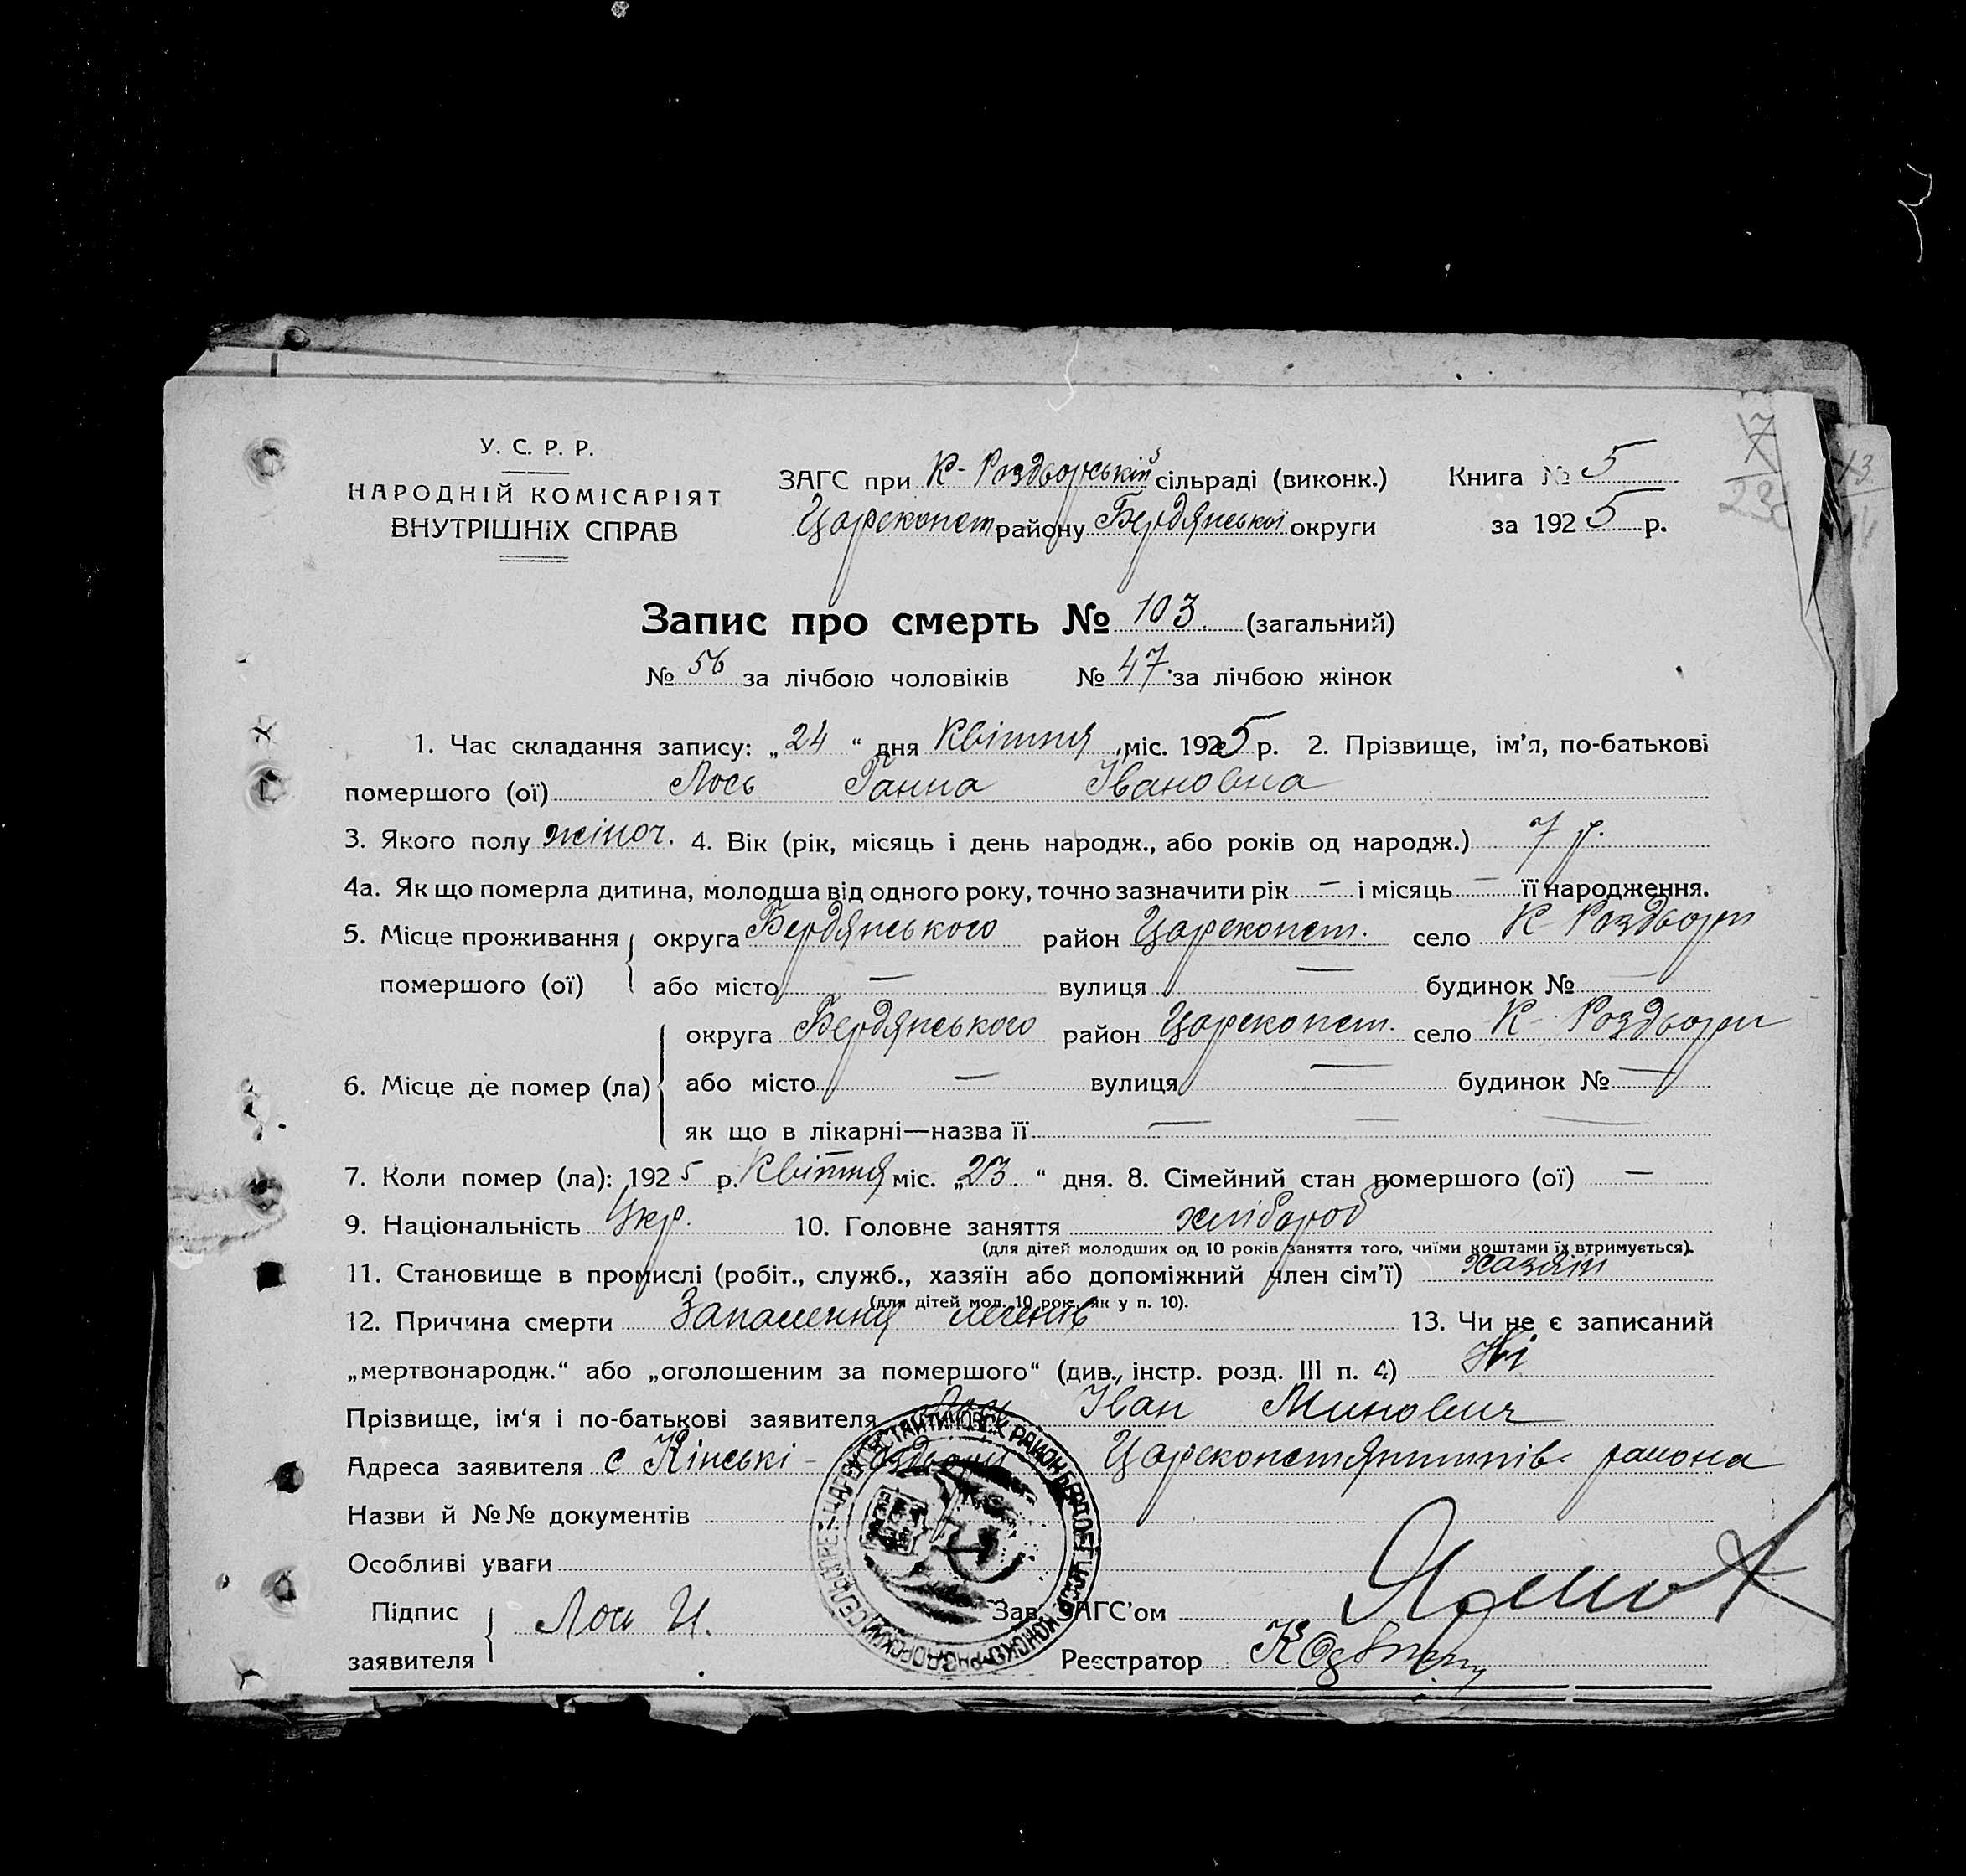 У. С. Р. Р.
НАРОДНІЙ КОМІСАРІЯТ
ВНУТРІШНІХ СПРАВ
ЗАГС при К-Роздьорській сільраді (виконк.) Книга № 5
Цареконст району Бердянської округи за 1925 р.
Запис про смерть № 103. (загальний)
№ 56 за лічбою чоловіків № 47. за лічбою жінок
1. Час складання запису: „24“ дня Квітня міс. 1925 р. 2. Прізвище, ім’я, по-батькові
помершого (ої) Лось Ганна Івановна
3. Якого полу жіноч. 4. Вік (рік, місяць і день народж., або років од народж.) 7 р.
4а. Як що померла дитина, молодша від одного року, точно зазначити рік — і місяць — її народження.
5. Місце проживання округа Бердянського район Цареконст. село К-Роздьори
помершого (ої) або місто — вулиця — будинок № —
округа Бердянського район Цареконст. село К-Роздьори
6. Місце де помер (ла) або місто — вулиця — будинок № —
як що в лікарні—назва її — — —
7. Коли помер (ла): 1925 р. Квітня міс. „23.“ дня. 8. Сімейний стан помершого (ої) —
9. Національність Укр. 10. Головне заняття хлібороб
(для дітей молодших од 10 років заняття того, чиїми коштами їх втримується).
11. Становище в промислі (робіт., служб., хазяїн або допоміжний член сім’ї) хазяїн
(для дітей мол. 10 рок., як у п. 10).
12. Причина смерти Запалення легенів 13. Чи не є записаний
„мертвонародж.“ або „оголошеним за помершого“ (див. інстр. розд. III п. 4) Ні
Прізвище, ім‘я і по-батькові заявителя Лось Іван Минович
Адреса заявителя с Кінські-Роздьори Цареконстянтинів. района
Назви й №№ документів
Особливі уваги
Підпис Лось И. Зав. ЗАГС’ом
заявителя Реєстратор